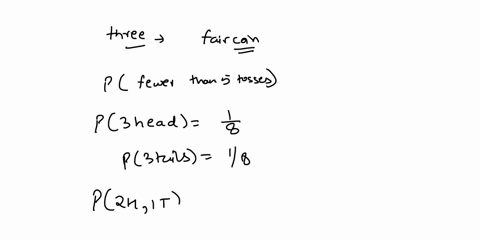 three → fair can
P( fewer than 5 tosses)
P(3 head) = 1/8
P(3 tails) = 1/8
P(2H, 1T)